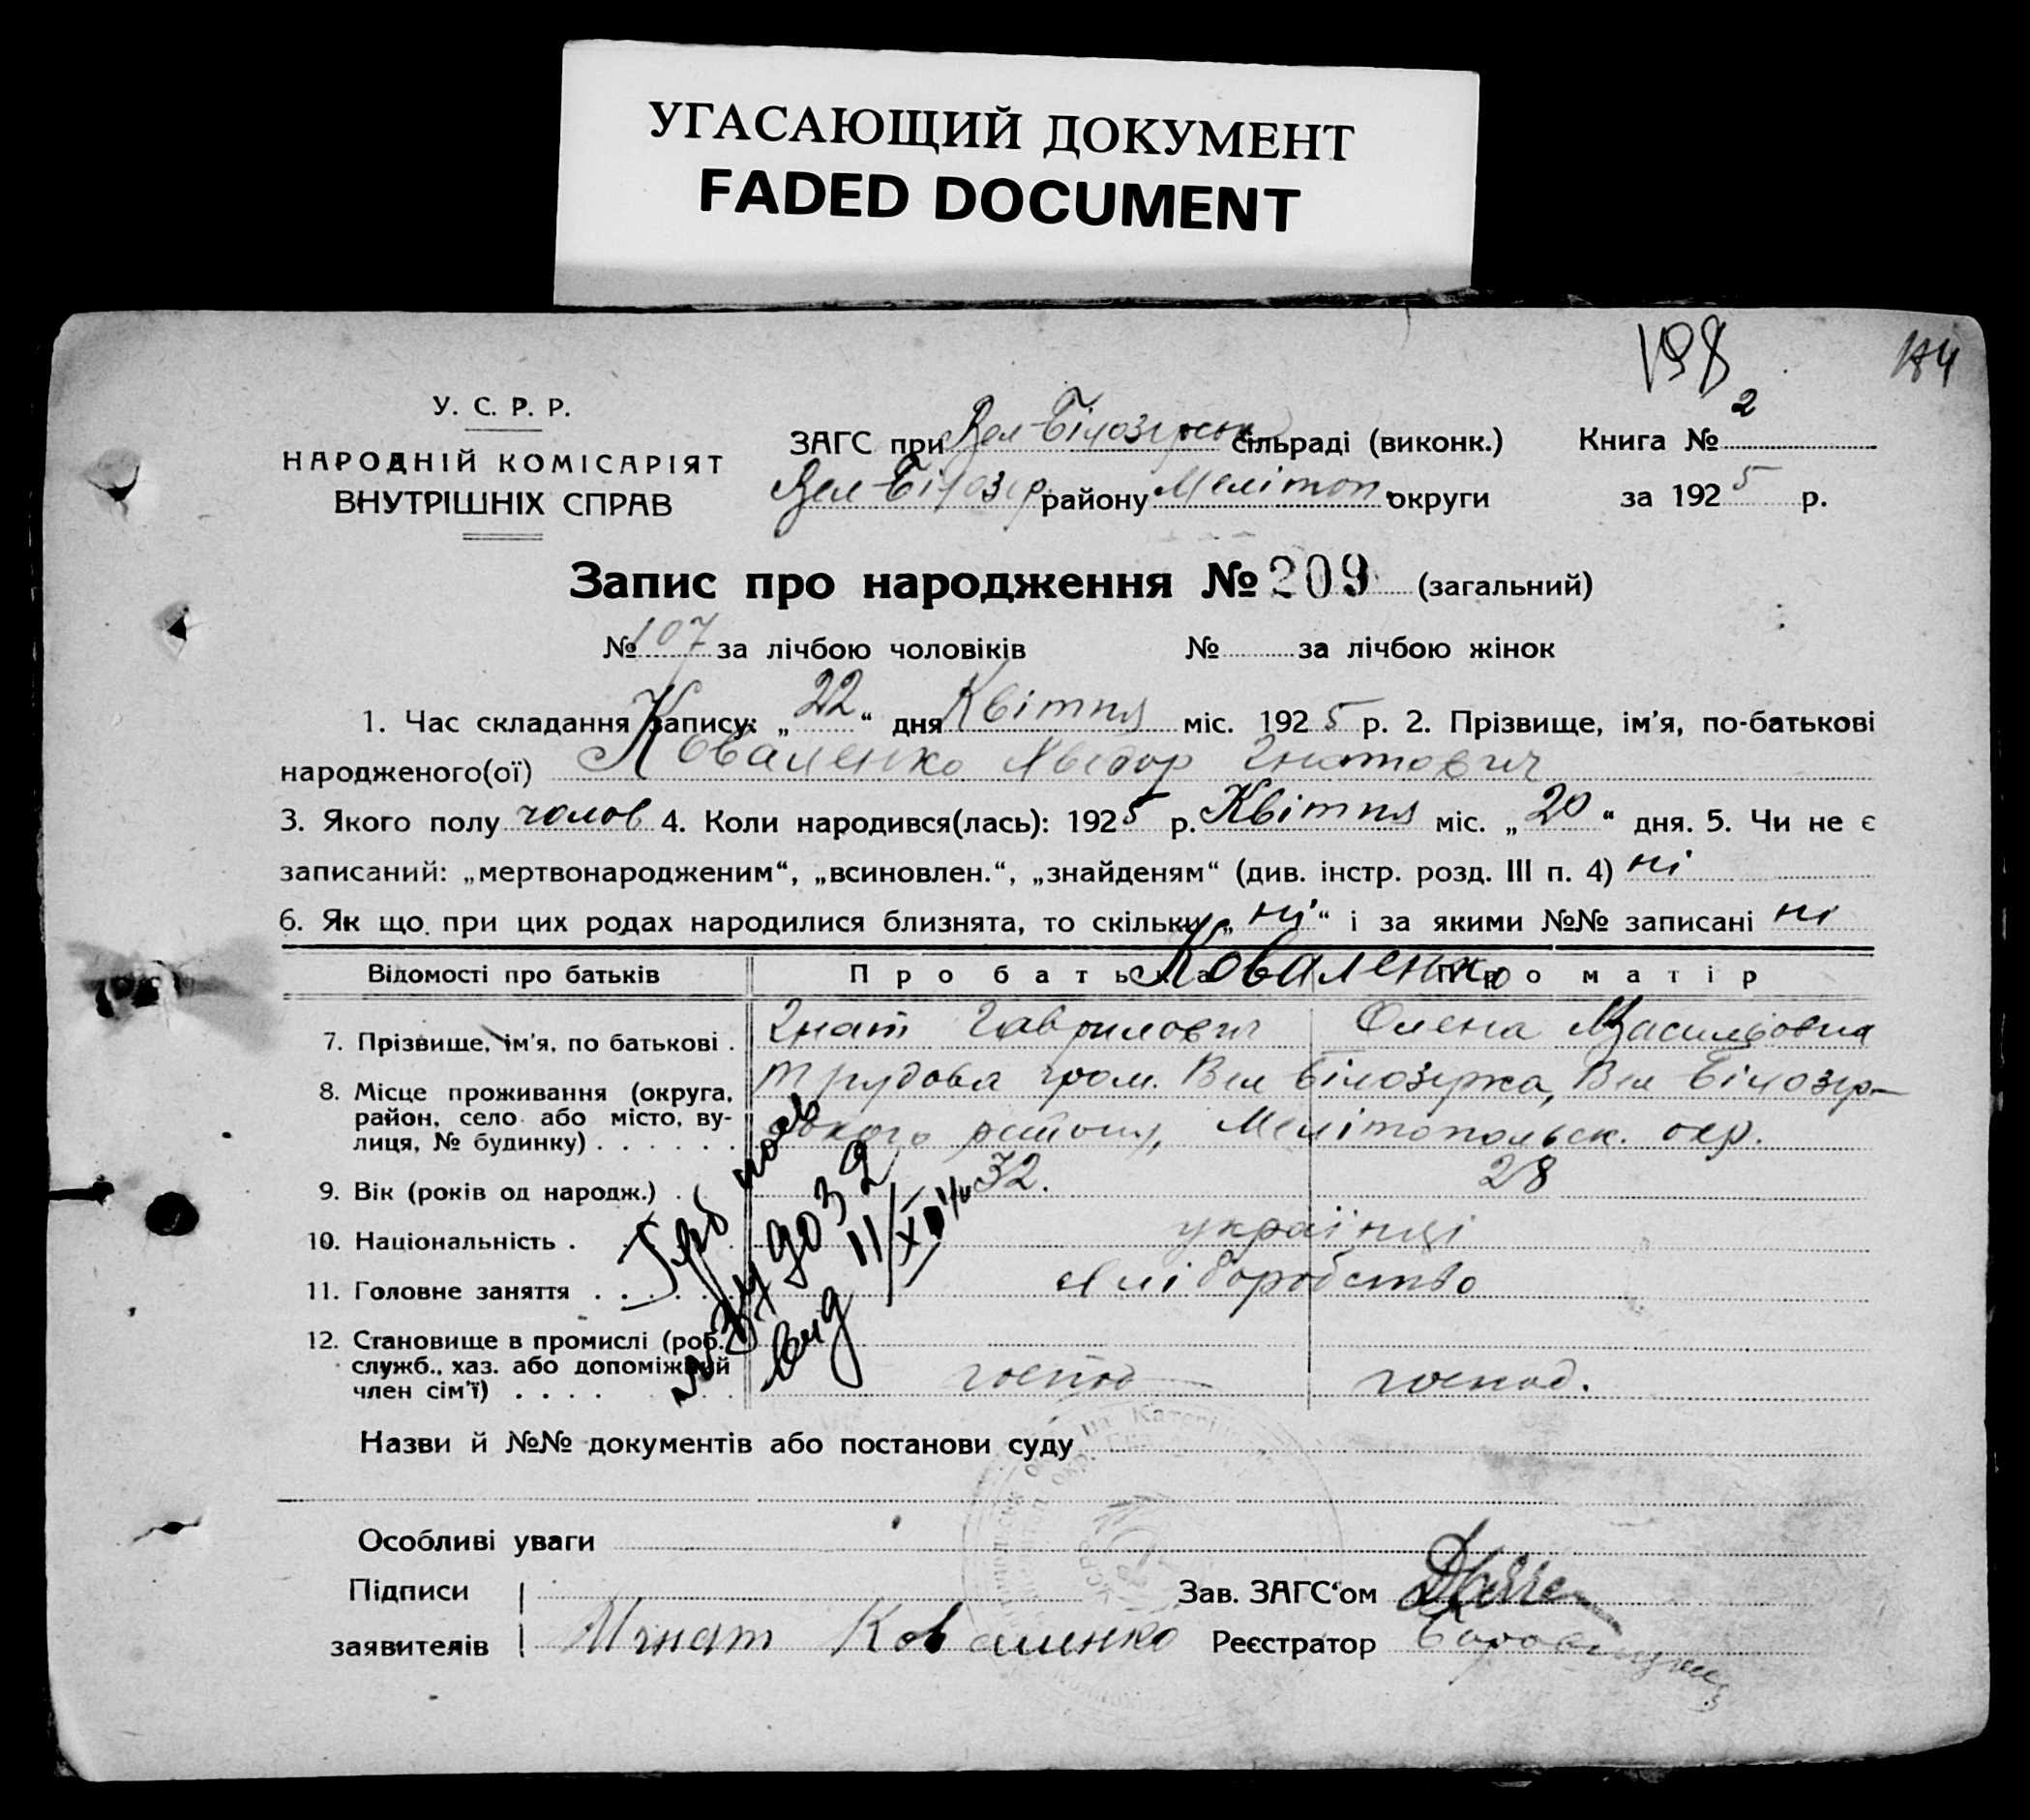 УГАСАЮЩИЙ ДОКУМЕНТ
FADED DOCUMENT
198
184
У. С. Р. Р.
НАРОДНІЙ КОМІСАРІЯТ
ВНУТРІШНІХ СПРАВ
ЗАГС при Вел-Білозірськ сільраді (виконк.) Книга № 2
Вел-Білозір району Мелітоп. округи за 1925 р.
Запис про народження № 209 (загальний)
№ 107 за лічбою чоловіків № за лічбою жінок
1. Час складання запису: „22“ дня Квітня міс. 1925 р. 2. Прізвище, ім'я, по-батькові
народженого(ої) Коваленко Хведор Гнатович
3. Якого полу чолов 4. Коли народився(лась): 1925 р. Квітня міс. „20“ дня. 5. Чи не є
записаний: „мертвонародженим“, „всиновлен.“, „знайденям“ (див. інстр. розд. III п. 4) ні
6. Як що при цих родах народилися близнята, то скільки „ні“ і за якими №№ записані ні
Відомості про батьків Про батька Про матір
Коваленко
7. Прізвище, ім'я, по батькові . Гнат Гаврилович Олена Васильовна
8. Місце проживання (округа, район, село або місто, вулиця, № будинку) . . . . . . Трудова гром. Вел Білозірка, Вел Білозір-
ського району, Мелітопольськ. окр.
9. Вік (років од народж.) . 32. 28
10. Національність . українці
11. Головне заняття . . . . . Хліборобство
12. Становище в промислі (роб. служб., хаз. або допоміжний член сім'ї) . . . . господ господ.
II/XI
Назви й №№ документів або постанови суду
Особливі уваги
Підписи Зав. ЗАГС‘ом
заявителів Игнат Коваленко Реєстратор